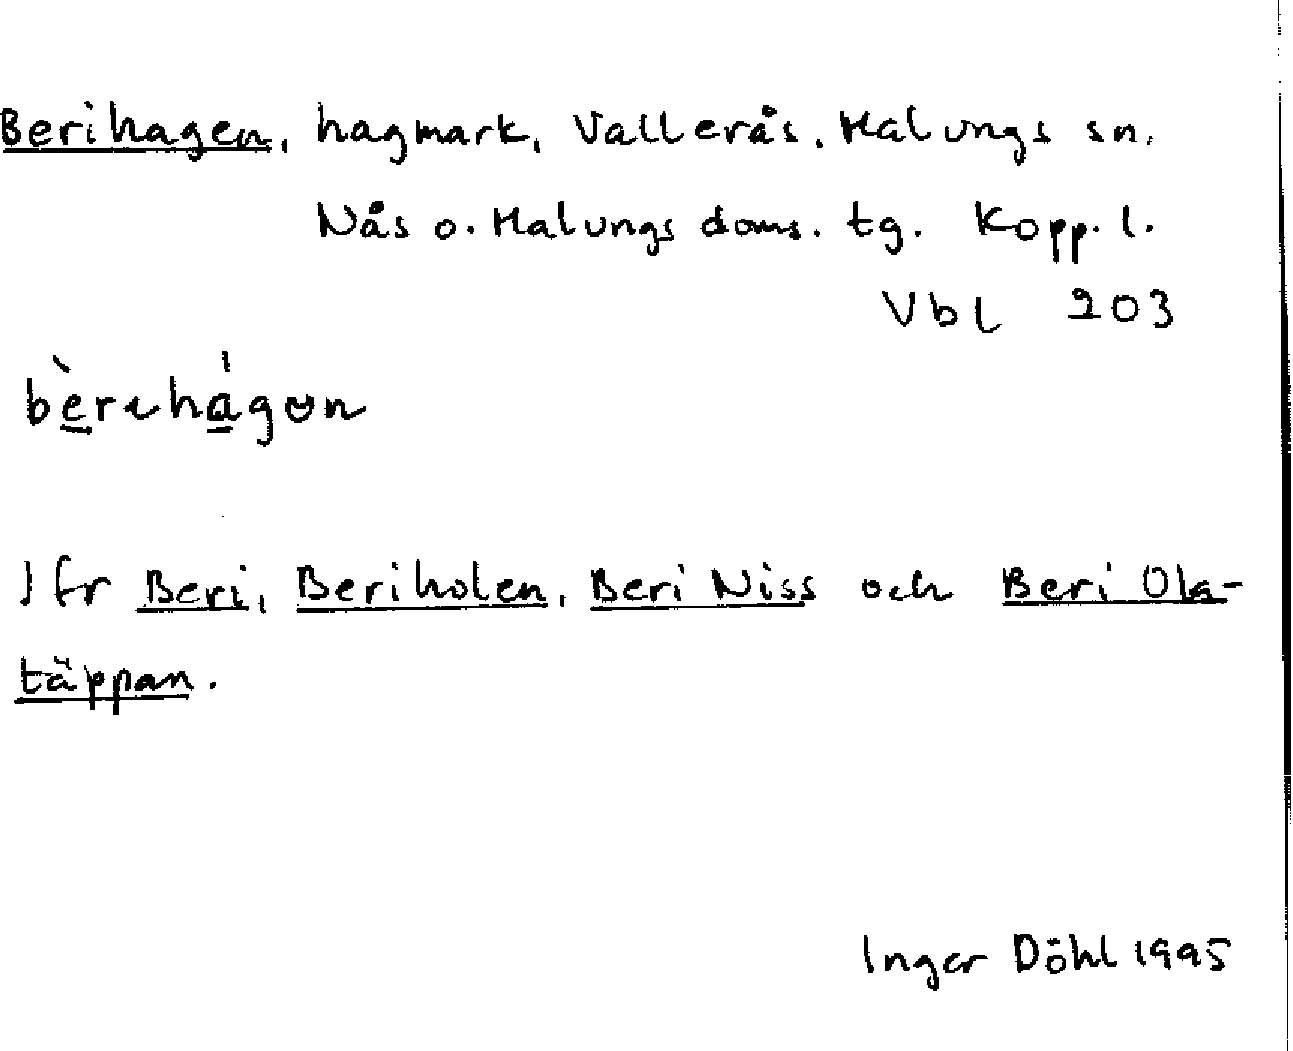 Berihagen, hagmark, Vallerås, Malungs sn.
Nås o. Malungs doms. tg. Kopp. l.
Vbl 203
bèrɩhágɷn
Jfr Beri, Beriholen, Beri Niss och Beri Ola-
täppan.
Inger Döhl 1995